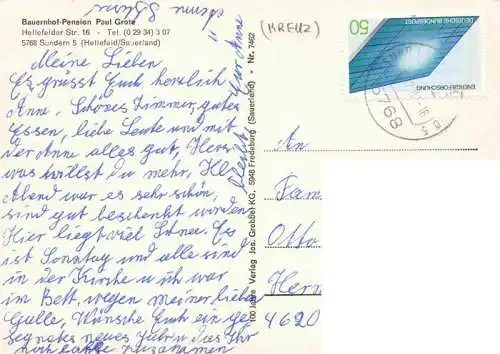 Bauernhof-Pension Paul Grote
Hellefelder Str. 16 • Tel. (0 29 34) 3 07
5768 Sundern 5 (Hellefeld/Sauerland)
Meine Lieben
Es grüsst Euch herzlich
Anne, Schönes Zimmer, gutes
Essen, liebe Leute und mit
der Anne alles gut, Herz
was willst du mehr, Hl.
Abend war es sehr schön,
sind gut beschenkt worden
Hier liegt viel Schnee. Es
ist Sonntag und alle sind
in der Kirche u ich war
im Bett, wegen meiner lieben
Galle, Wünsche Euch ein ge-
segnetes neues Jahr, das Ihr
noch lange zusammen
Eure Anne
100 Jahre Verlag Jos. Grobbel KG., 5948 Fredeburg (Sauerland) • Nr. 7462
(KREUZ)
50
DEUTSCHE BUNDESPOST
ENERGIEFORSCHUNG
5768
An
Fam
Otto
Hern
4620